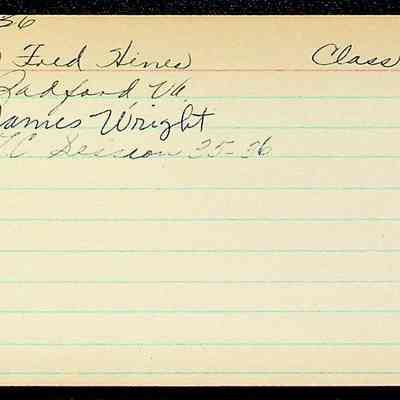 36
Fred Hines Class
Radford Va.
James Wright
Session 35-36